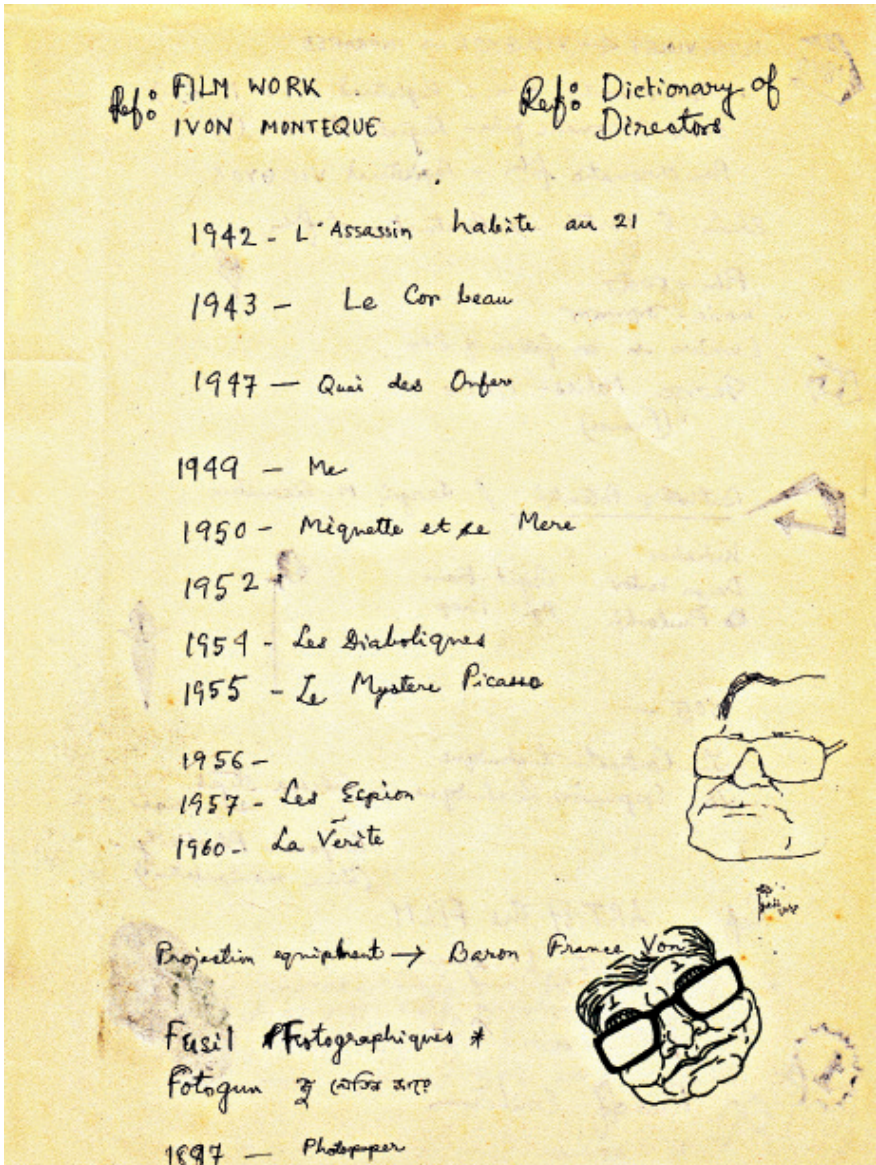 Ref: FILM WORK
IVON MONTEQUE
Ref: Dictionary of
Directors
1942 - L'Assassin habite au 21
1943 - Le Cor beau
1947 - Quai des Orfer
1949 - Me
1950 - Miquette et se Mere
1952 -
1954 - Les Diaboliques
1955 - Le Mystere Picasso
1956 -
1957 - Les Espion
1960 - La Verite
Projection equipment → Baron France Von
Fusil Fotographiques *
Fotogun
1887 - Photopaper